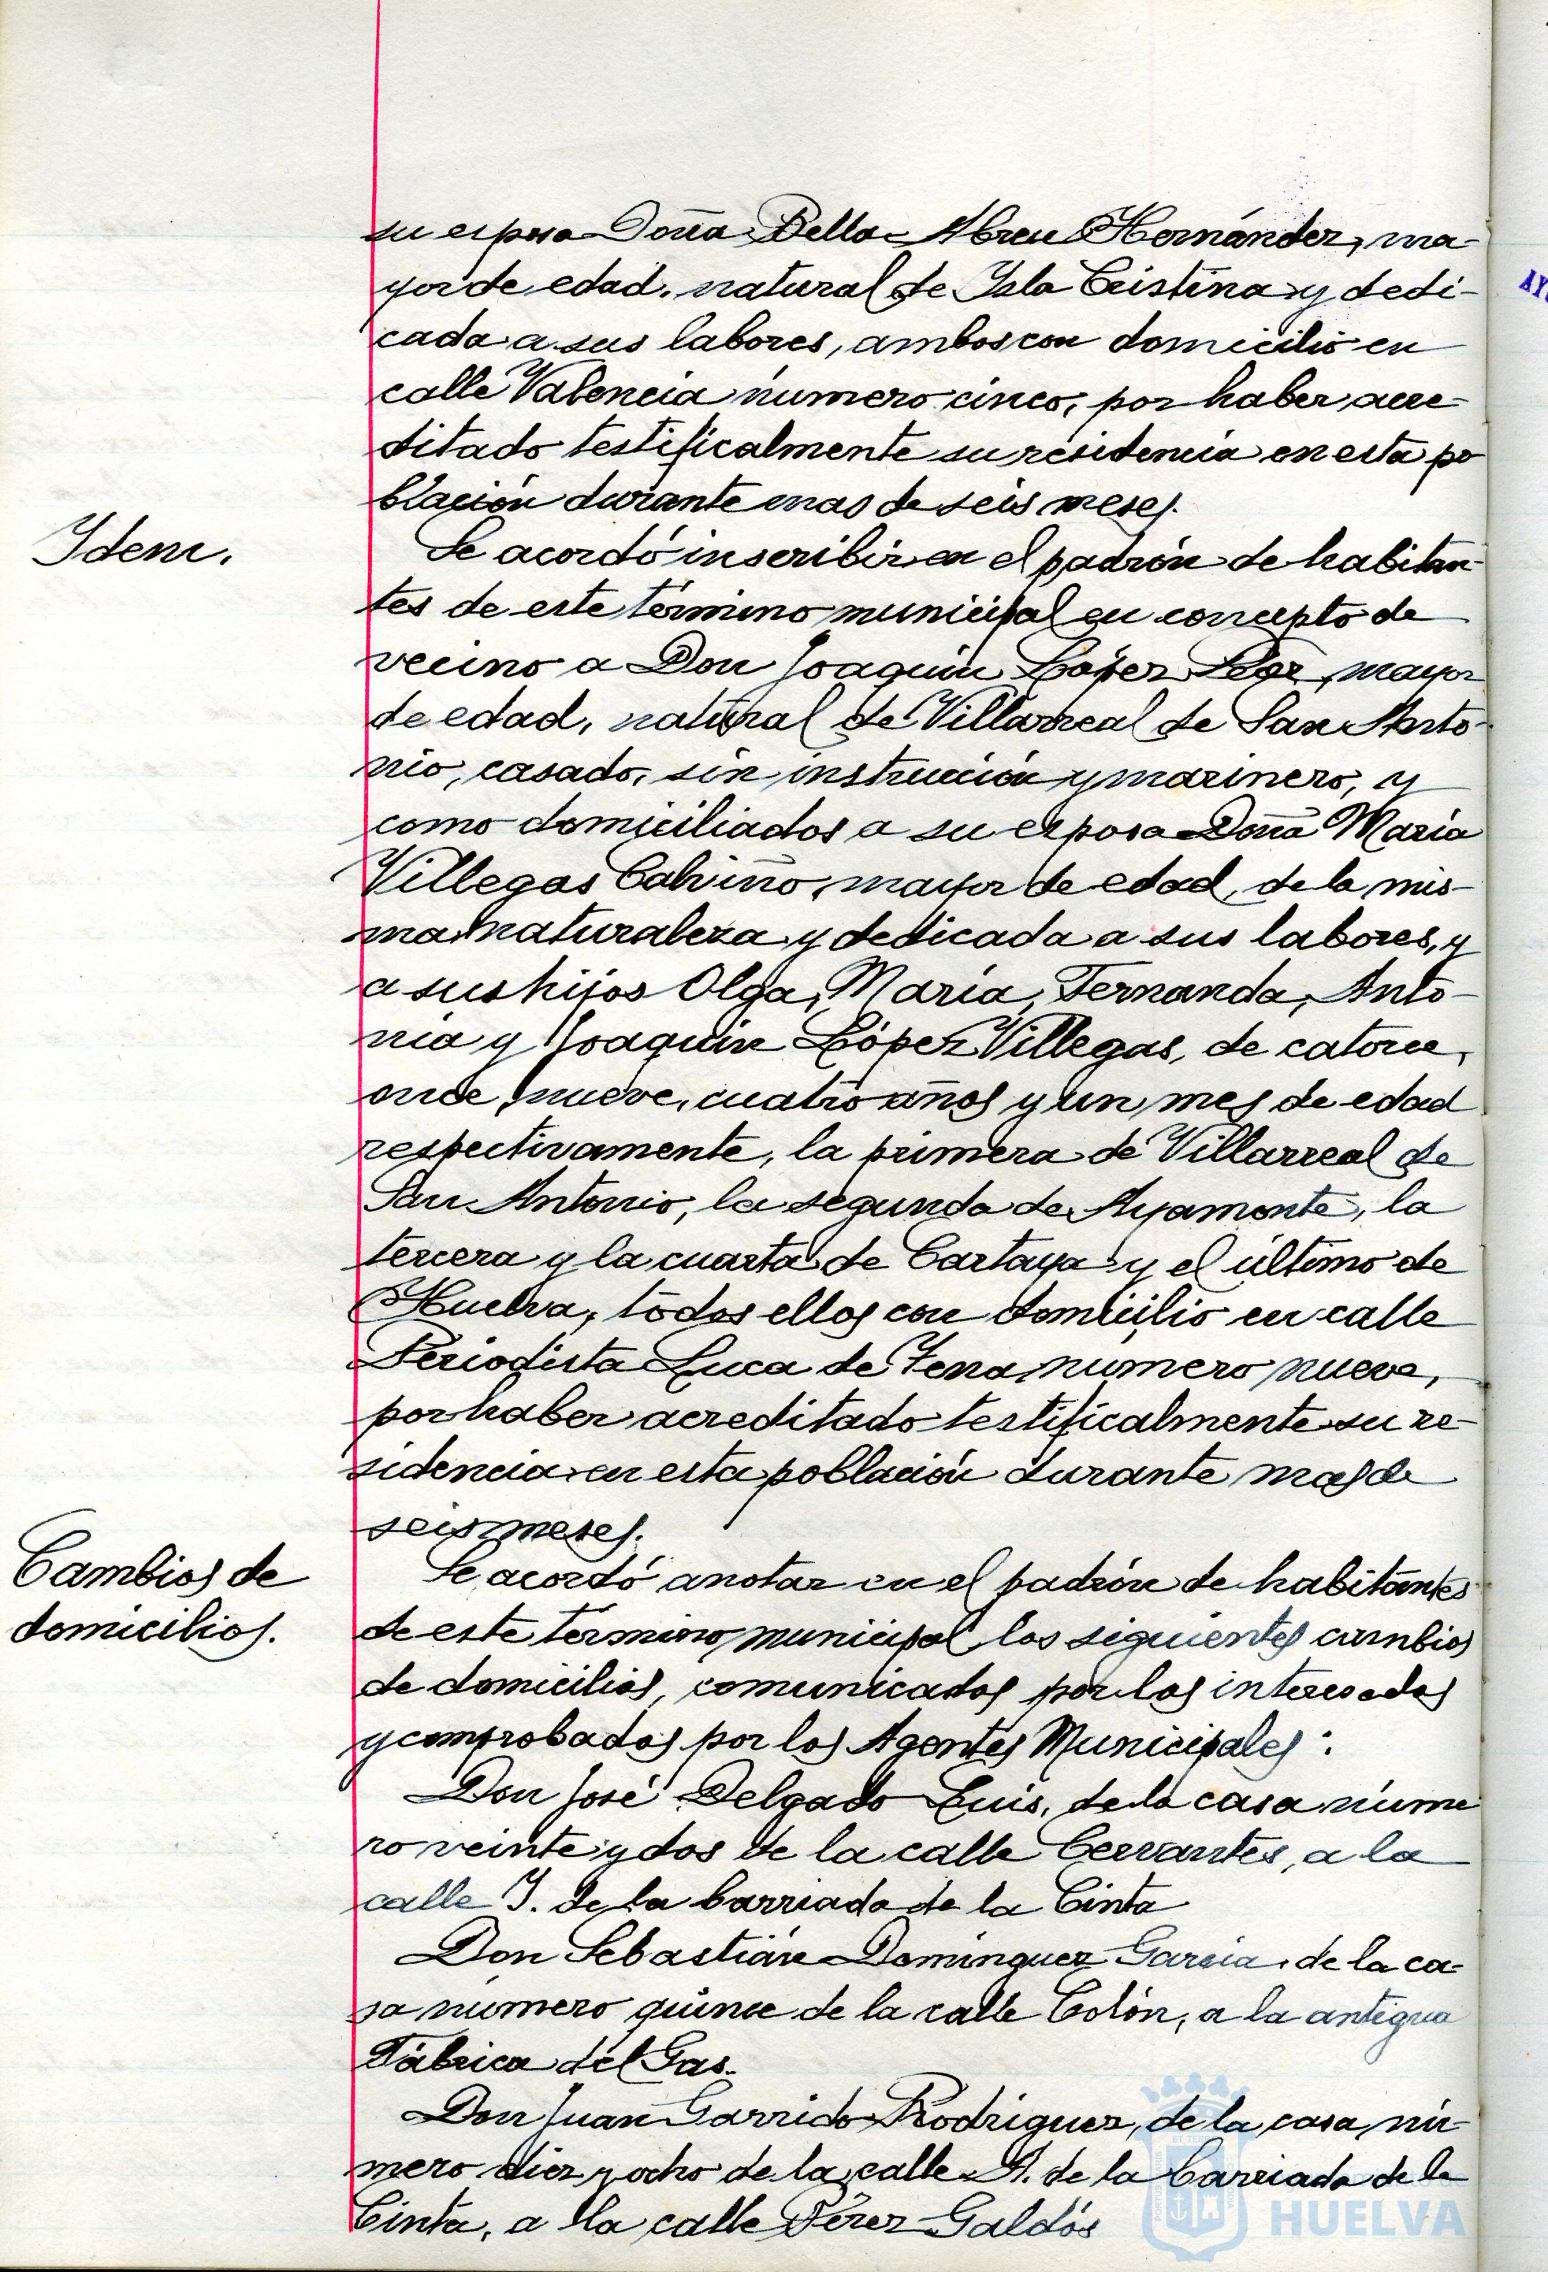 su esposa Doña Bella Abreu Hernández, ma-
yor de edad, natural de Isla Cristina y dedi-
cada a sus labores, ambos con domicilio en
calle Valencia número cinco, por haber acre-
ditado testificalmente su residencia en esta po
blación durante mas de seis meses.
Idem.
Se acordó inscribir en el padrón de habitan-
tes de este término municipal en concepto de
vecino a Don Joaquín López, mayor
de edad, natural de Villarreal de San Anto-
nio, casado, sin instrucción y marinero, y
como domiciliados a su esposa Doña María
Villegas Calviño, mayor de edad, de la mis-
ma naturaleza y dedicada a sus labores, y
a sus hijos Olga, María, Fernanda, Anto-
nia y Joaquín López Villegas, de catorce,
once, nueve, cuatro años y un mes de edad
respectivamente, la primera de Villarreal de
San Antonio, la segunda de Ayamonte, la
tercera y la cuarta de Cartaya y el último de
Huelva, todos ellos con domicilio en calle
Periodista Luca de Tena número nueve,
por haber acreditado testificalmente su re-
sidencia en esta población durante mas de
seis meses.
Cambios de
domicilios.
Se acordó anotar en el padrón de habitantes
de este término municipal los siguientes cambios
de domicilios, comunicados por los interesados
y comprobados por los Agentes Municipales:
Don José Delgado Luis, de la casa núme
ro veinte y dos de la calle Cervantes, a la
calle J. de la barriada de la Cinta
Don Sebastián Domínguez García, de la ca-
sa número quince de la calle Colón, a la antigua
Fábrica del Gas.
Don Juan Garrido Rodríguez, de la casa nú-
mero diez y ocho de la calle A. de la barriada de la
Cinta, a la calle Pérez Galdós
HUELVA